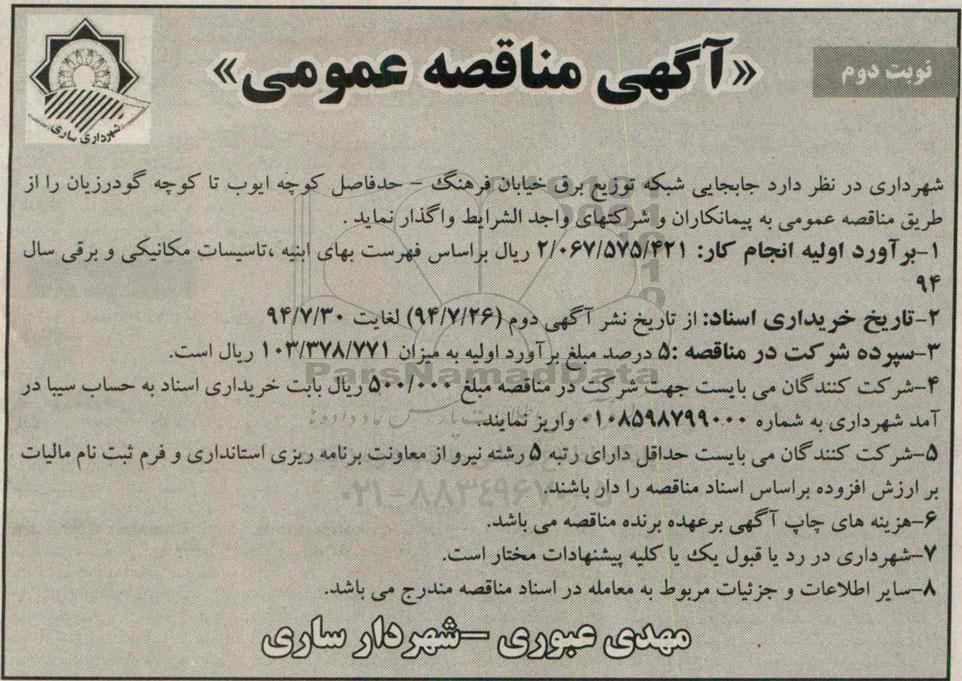 نوبت دوم
«آگهی مناقصه عمومی»
شهرداری ساری
شهرداری در نظر دارد جابجایی شبکه توزیع برق خیابان فرهنگ – حدفاصل کوچه ایوب تا کوچه گودرزیان را از
طریق مناقصه عمومی به پیمانکاران و شرکتهای واجد الشرایط واگذار نماید .
۱-برآورد اولیه انجام کار: ۲/۰۶۷/۵۷۵/۴۲۱ ریال براساس فهرست بهای ابنیه ،تاسیسات مکانیکی و برقی سال
۹۴
۲-تاریخ خریداری اسناد: از تاریخ نشر آگهی دوم (۹۴/۷/۲۶) لغایت ۹۴/۷/۳۰
۳-سپرده شرکت در مناقصه :۵ درصد مبلغ برآورد اولیه به میزان ۱۰۳/۳۷۸/۷۷۱ ریال است.
ParsNamadData
۴-شرکت کنندگان می بایست جهت شرکت در مناقصه مبلغ ۵۰۰/۰۰۰ ریال بابت خریداری اسناد به حساب سیبا در
آمد شهرداری به شماره ۰۱۰۸۵۹۸۷۹۹۰۰۰ واریز نمایند.
۵-شرکت کنندگان می بایست حداقل دارای رتبه ۵ رشته نیرو از معاونت برنامه ریزی استانداری و فرم ثبت نام مالیات
بر ارزش افزوده براساس اسناد مناقصه را دار باشند.
۰۲۱-۸۸۳۴۹۶۷۰-۵
۶-هزینه های چاپ آگهی برعهده برنده مناقصه می باشد.
۷-شهرداری در رد یا قبول یک یا کلیه پیشنهادات مختار است.
۸-سایر اطلاعات و جزئیات مربوط به معامله در اسناد مناقصه مندرج می باشد.
مهدی عبوری –شهردار ساری